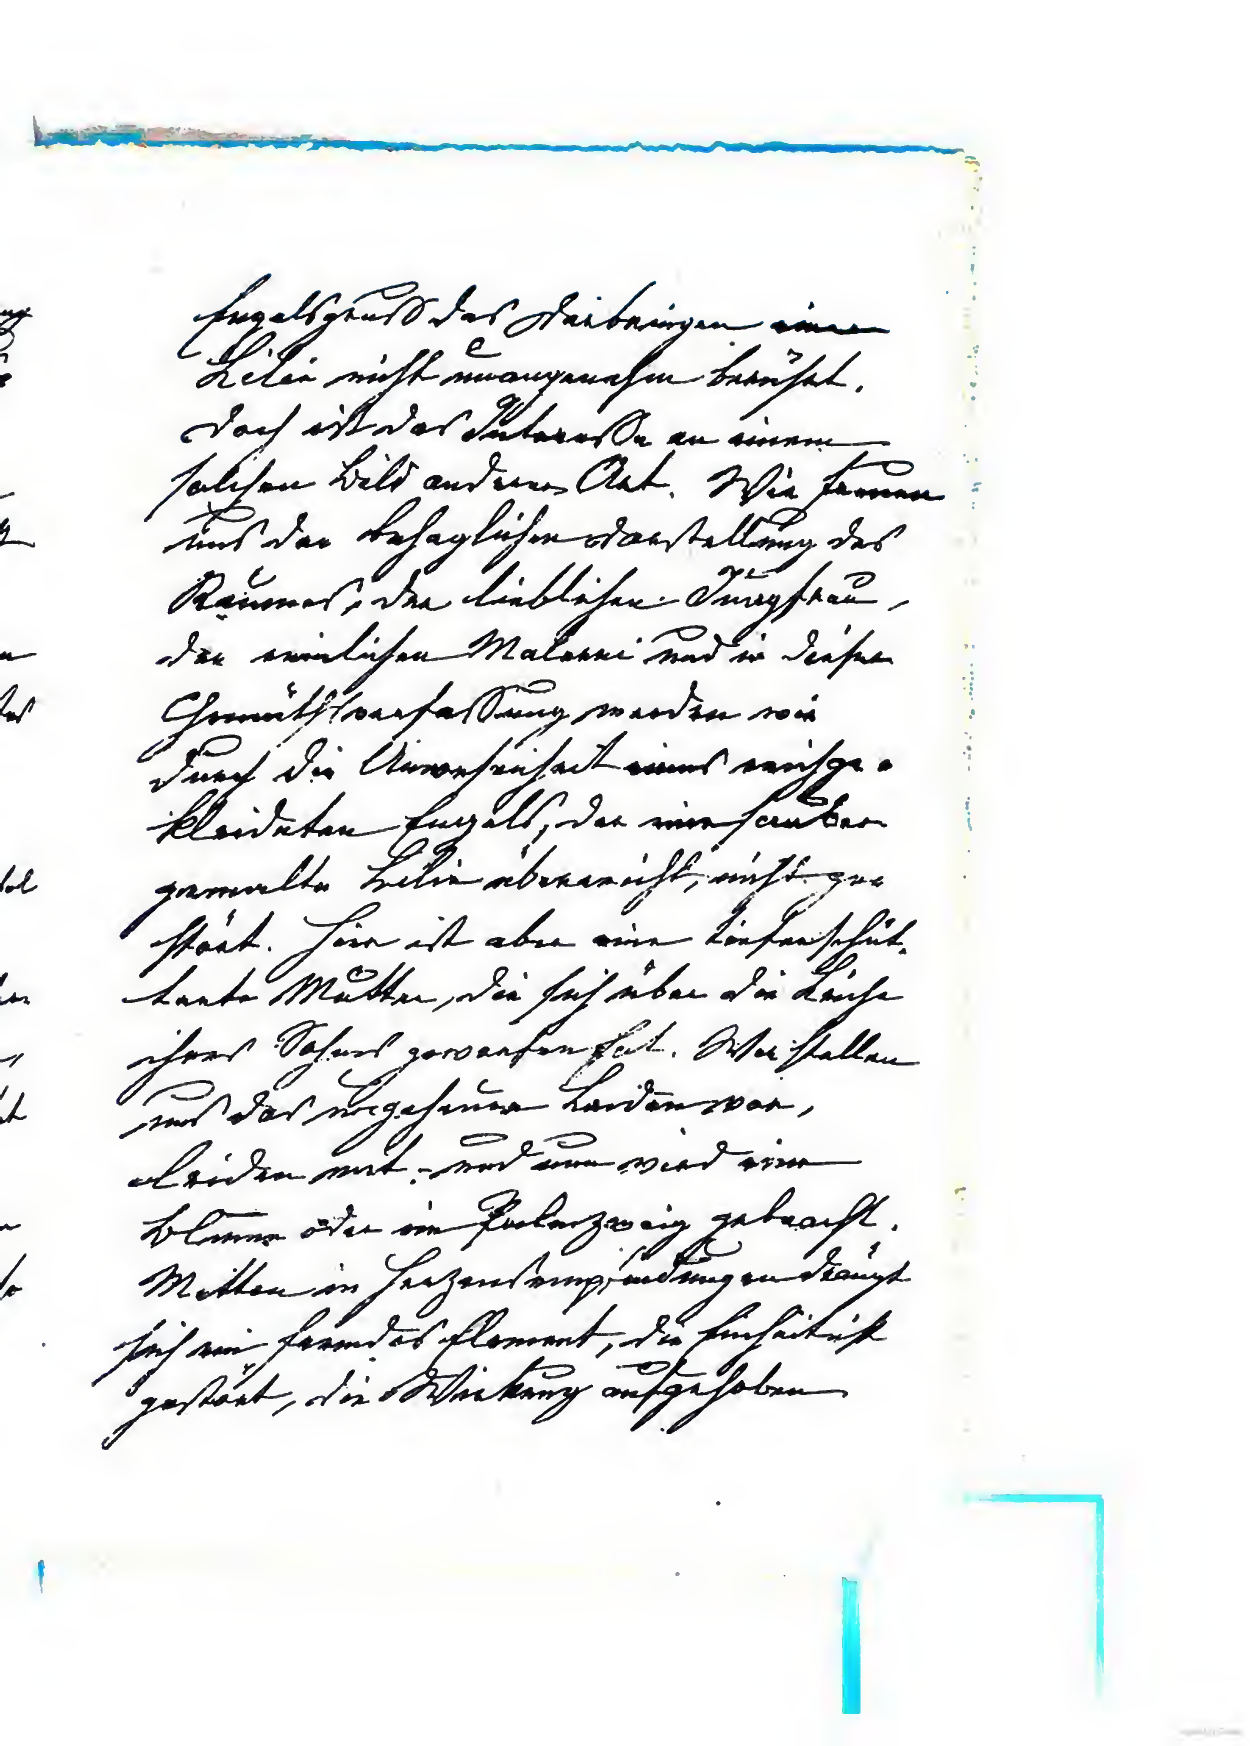 Engelsgruss das Darbringen einer
Lilie nicht unangenehm berührt.
Doch ist das Interesse an einem
solchen Bild anderer Art. Wir freuen
uns der behaglichen Darstellung des
Raumes, der lieblichen Jungfrau,
der reinlichen Malerei und in dieser
Gemüthsverfassung werden wir
durch die Anwesenheit eines reichge-
kleideten Engels, der eine sauber
gemalte Lilie überreicht, nicht ge-
stört. Hier ist aber eine tieferschüt-
terte Mutter, die sich über die Leiche
ihres Sohnes geworfen hat. Wir stellen
uns das ungeheure Leiden vor,
leiden mit - und nun wird eine
Blume oder ein Palmzweig gebracht.
Mitten in Herzensempfindungen drängt
sich ein fremdes Element, die Einheit ist
gestört, die Wirkung aufgehoben